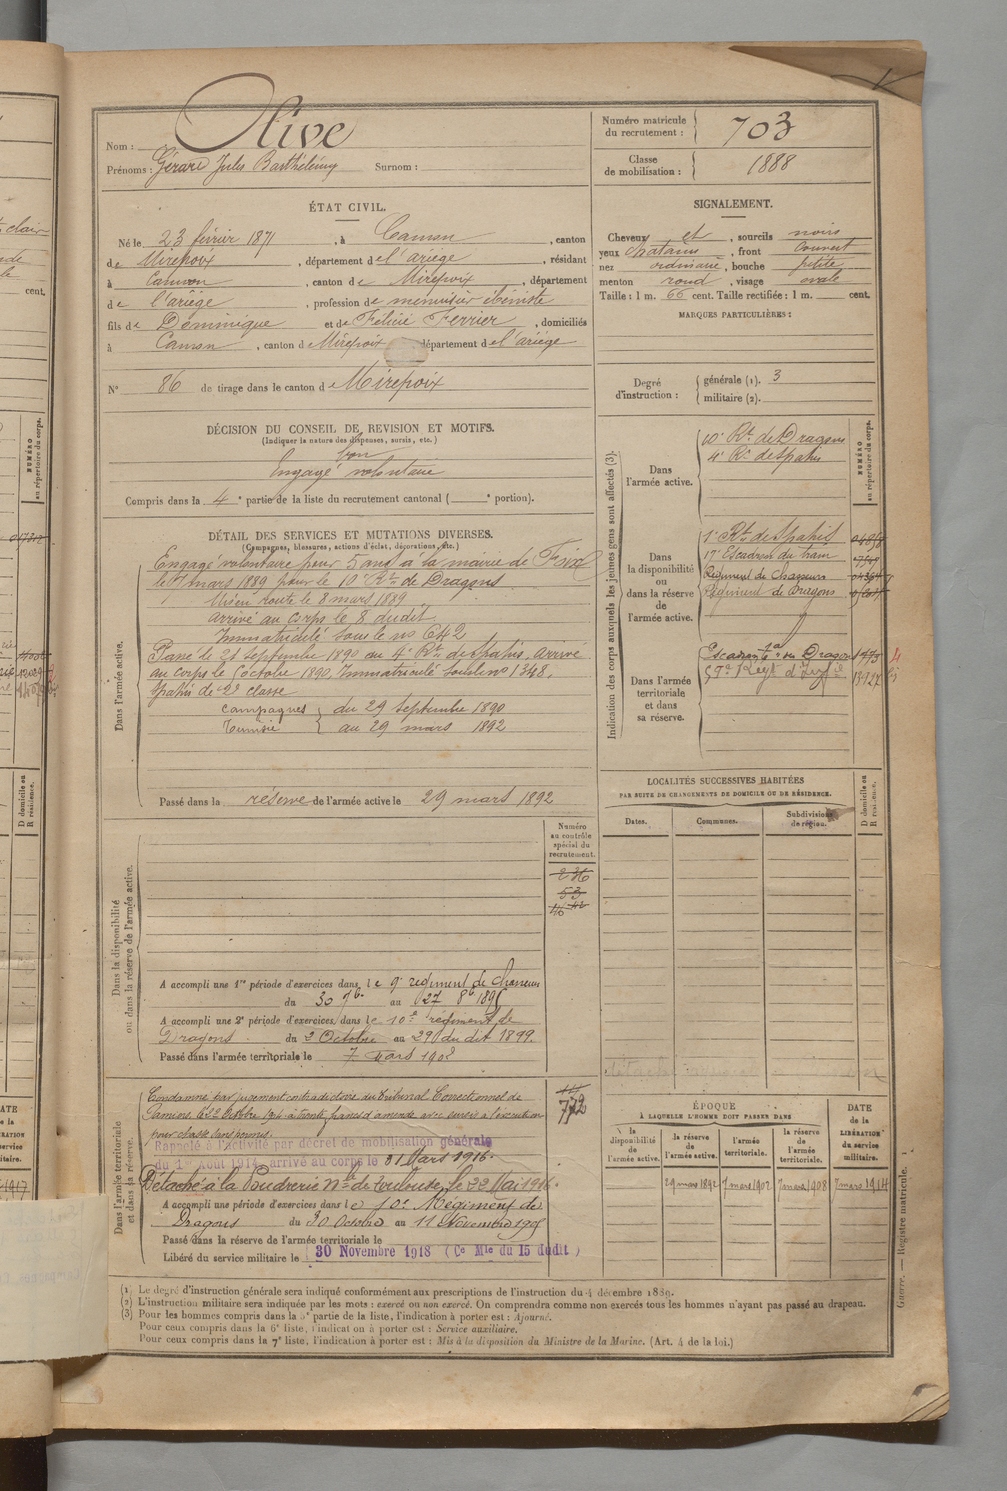 Nom : Olive
Prénoms : Gérard Jules Barthélémy Surnom :
Numéro matricule du recrutement : 703
Classe de mobilisation : 1888
ÉTAT CIVIL.
Né le 23 février 1871, à Camon, canton
de Mirepoix, département de l'ariège, résidant
à Camon, canton de Mirepoix, département
de l'ariège, profession de menuisier ébéniste
fils de Dominique et de Félicie Ferrier, domiciliés
à Camon, canton de Mirepoix département de l'ariège
N° 86 de tirage dans le canton de Mirepoix
DÉCISION DU CONSEIL DE REVISION ET MOTIFS.
(Indiquer la nature des dispenses, sursis, etc.)
bon
Engagé volontaire
Compris dans la 4e partie de la liste du recrutement cantonal ( e portion).
SIGNALEMENT.
Cheveux et, sourcils noirs
yeux chatains, front couvert
nez ordinaire, bouche petite
menton rond, visage ovale
Taille : 1 m. 66 cent. Taille rectifiée : 1 m. cent.
MARQUES PARTICULIÈRES :
Degré d'instruction : générale (1). 3
militaire (2).
DÉTAIL DES SERVICES ET MUTATIONS DIVERSES.
(Campagnes, blessures, actions d'éclat, décorations, etc.)
Dans l'armée active.
Engagé volontaire pour 5 ans à la mairie de Foix
le 7 mars 1889 pour le 10e Rt de Dragons
Mis en route le 8 mars 1889
arrivé au corps le 8 dudit
Immatriculé sous le no 642
Passé le 21 septembre 1890 au 4e Rt de Spahis. Arrivé
au corps le 5 octobre 1890, Immatriculé sous le no 1348.
Spahis de 2e classe
Campagnes du 29 septembre 1890
Tunisie au 29 mars 1892
Passé dans la réserve de l'armée active le 29 mars 1892
Indication des corps auxquels les jeunes gens sont affectés (3).
NUMÉRO au répertoire du corps.
Dans l'armée active.
10e Rt de Dragons
4e Rt de Spahis
Dans la disponibilité ou dans la réserve de l'armée active.
1e Rt de Spahis
17e Escadron du train
Régiment de Chasseurs
Régiment de Dragons
Dans l'armée territoriale et dans sa réserve.
Escadron tal du Dragons
Dans la disponibilité ou dans la réserve de l'armée active.
Numéro au contrôle spécial du recrutement.
236
53
A accompli une 1re période d'exercices dans le 9e régiment de Chasseurs
du 30 7bre au 27 8bre 1895
A accompli une 2e période d'exercices dans le 10e régiment de
Dragons du 2 Octobre au 29 du dit 1899.
Passé dans l'armée territoriale le 7 mars 1902
LOCALITÉS SUCCESSIVES HABITÉES
PAR SUITE DE CHANGEMENTS DE DOMICILE OU DE RÉSIDENCE.
Dates. Communes. Subdivisions de région. D domicile ou R résidence.
Dans l'armée territoriale et dans sa réserve.
772
Condamné par jugement contradictoire du Tribunal Correctionnel de
Pamiers, le 22 Octobre 1904 à trente francs d'amende avec sursis à l'exécution
pour chasse sans permis.
Rappelé à l'activité par décret de mobilisation générale
du 1er Août 1914, arrivé au corps le 31 Mars 1916.
Détaché à la Poudrerie Nle de Toulouse, le 22 Mai 1916.
A accompli une période d'exercices dans le 10e Régiment de
Dragons du 30 Octobre au 11 Novembre 1905
Passé dans la réserve de l'armée territoriale le
Libéré du service militaire le 30 Novembre 1918 (Ce Mle du 15 dudit)
ÉPOQUE
À LAQUELLE L'HOMME DOIT PASSER DANS
la disponibilité de l'armée active. la réserve de l'armée active. l'armée territoriale. la réserve de l'armée territoriale. DATE de la LIBÉRATION du service militaire.
29 mars 1892 7 mars 1902 7 mars 1908 7 mars 1914
(1) Le degré d'instruction générale sera indiqué conformément aux prescriptions de l'instruction du 4 décembre 1889.
(2) L'instruction militaire sera indiquée par les mots : exercé ou non exercé. On comprendra comme non exercés tous les hommes n'ayant pas passé au drapeau.
(3) Pour les hommes compris dans la 5e partie de la liste, l'indication à porter est : Ajourné.
Pour ceux compris dans la 6e liste, l'indication à porter est : Service auxiliaire.
Pour ceux compris dans la 7e liste, l'indication à porter est : Mis à la disposition du Ministre de la Marine. (Art. 4 de la loi.)
Guerre. — Registre matricule.